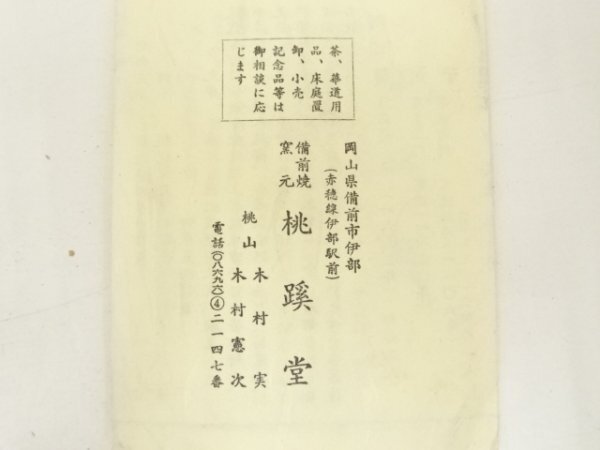 茶、華道用
品、床庭置
卸、小売
記念品等は
御相談に応
じます
岡山県備前市伊部
(赤穂線伊部駅前)
備前焼
窯元
桃蹊堂
桃山
木村実
木村憲次
電話(〇八六九六)④二一四七番